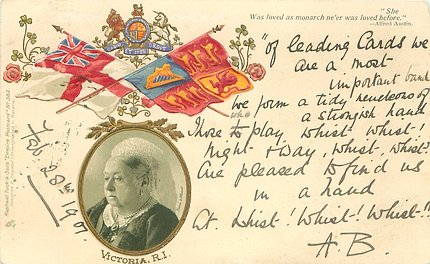 "She
Was loved as monarch ne'er was loved before."
—Alfred Austin.
"Of leading Cards we
are a most
important band
we form a tidy rendezvous of
who a strongish hand
Those to play whist! whist!
Night & Day, Whist, whist!
Are pleased to find us
in a hand
At Whist! Whist! Whist!!
A.B.
Feb 28th 1901.
Raphael Tuck & Sons' "Empire" Postcard Nº
VICTORIA, R.I.